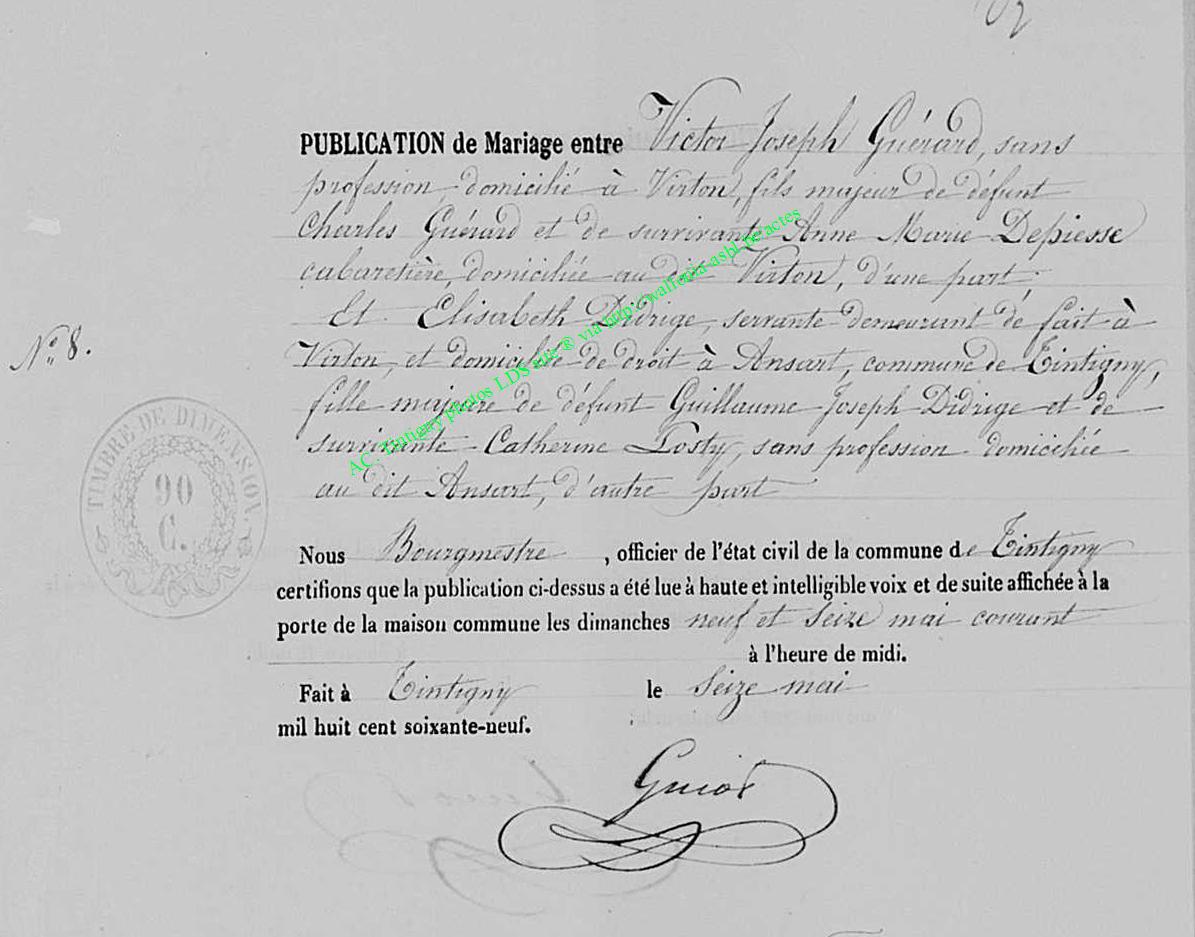 PUBLICATION de Mariage entre Victor Joseph Guérard, sans
profession, domicilié à Virton, fils majeur de défunt
Charles Guérard et de survivante Anne Marie Depiesse
cabaretière, domiciliée au dit Virton, d'une part,
Et Elisabeth Didrige, servante demeurant de fait à
N° 8.
Virton, et domiciliée de droit à Ansart, commune de Tintigny,
fille majeure de défunt Guillaume Joseph Didrige et de
survivante Catherine Posty, sans profession domiciliée
au dit Ansart, d'autre part
TIMBRE DE DIMENSION.
90
C.
Nous Bourgmestre, officier de l'état civil de la commune de Tintigny
certifions que la publication ci-dessus a été lue à haute et intelligible voix et de suite affichée à la
porte de la maison commune les dimanches neuf et seize mai courant
à l'heure de midi.
Fait à Tintigny le Seize mai
mil huit cent soixante-neuf.
Guiot
AC. Tintigny photos LDS site ® via http://wallonia-asbl.be/actes